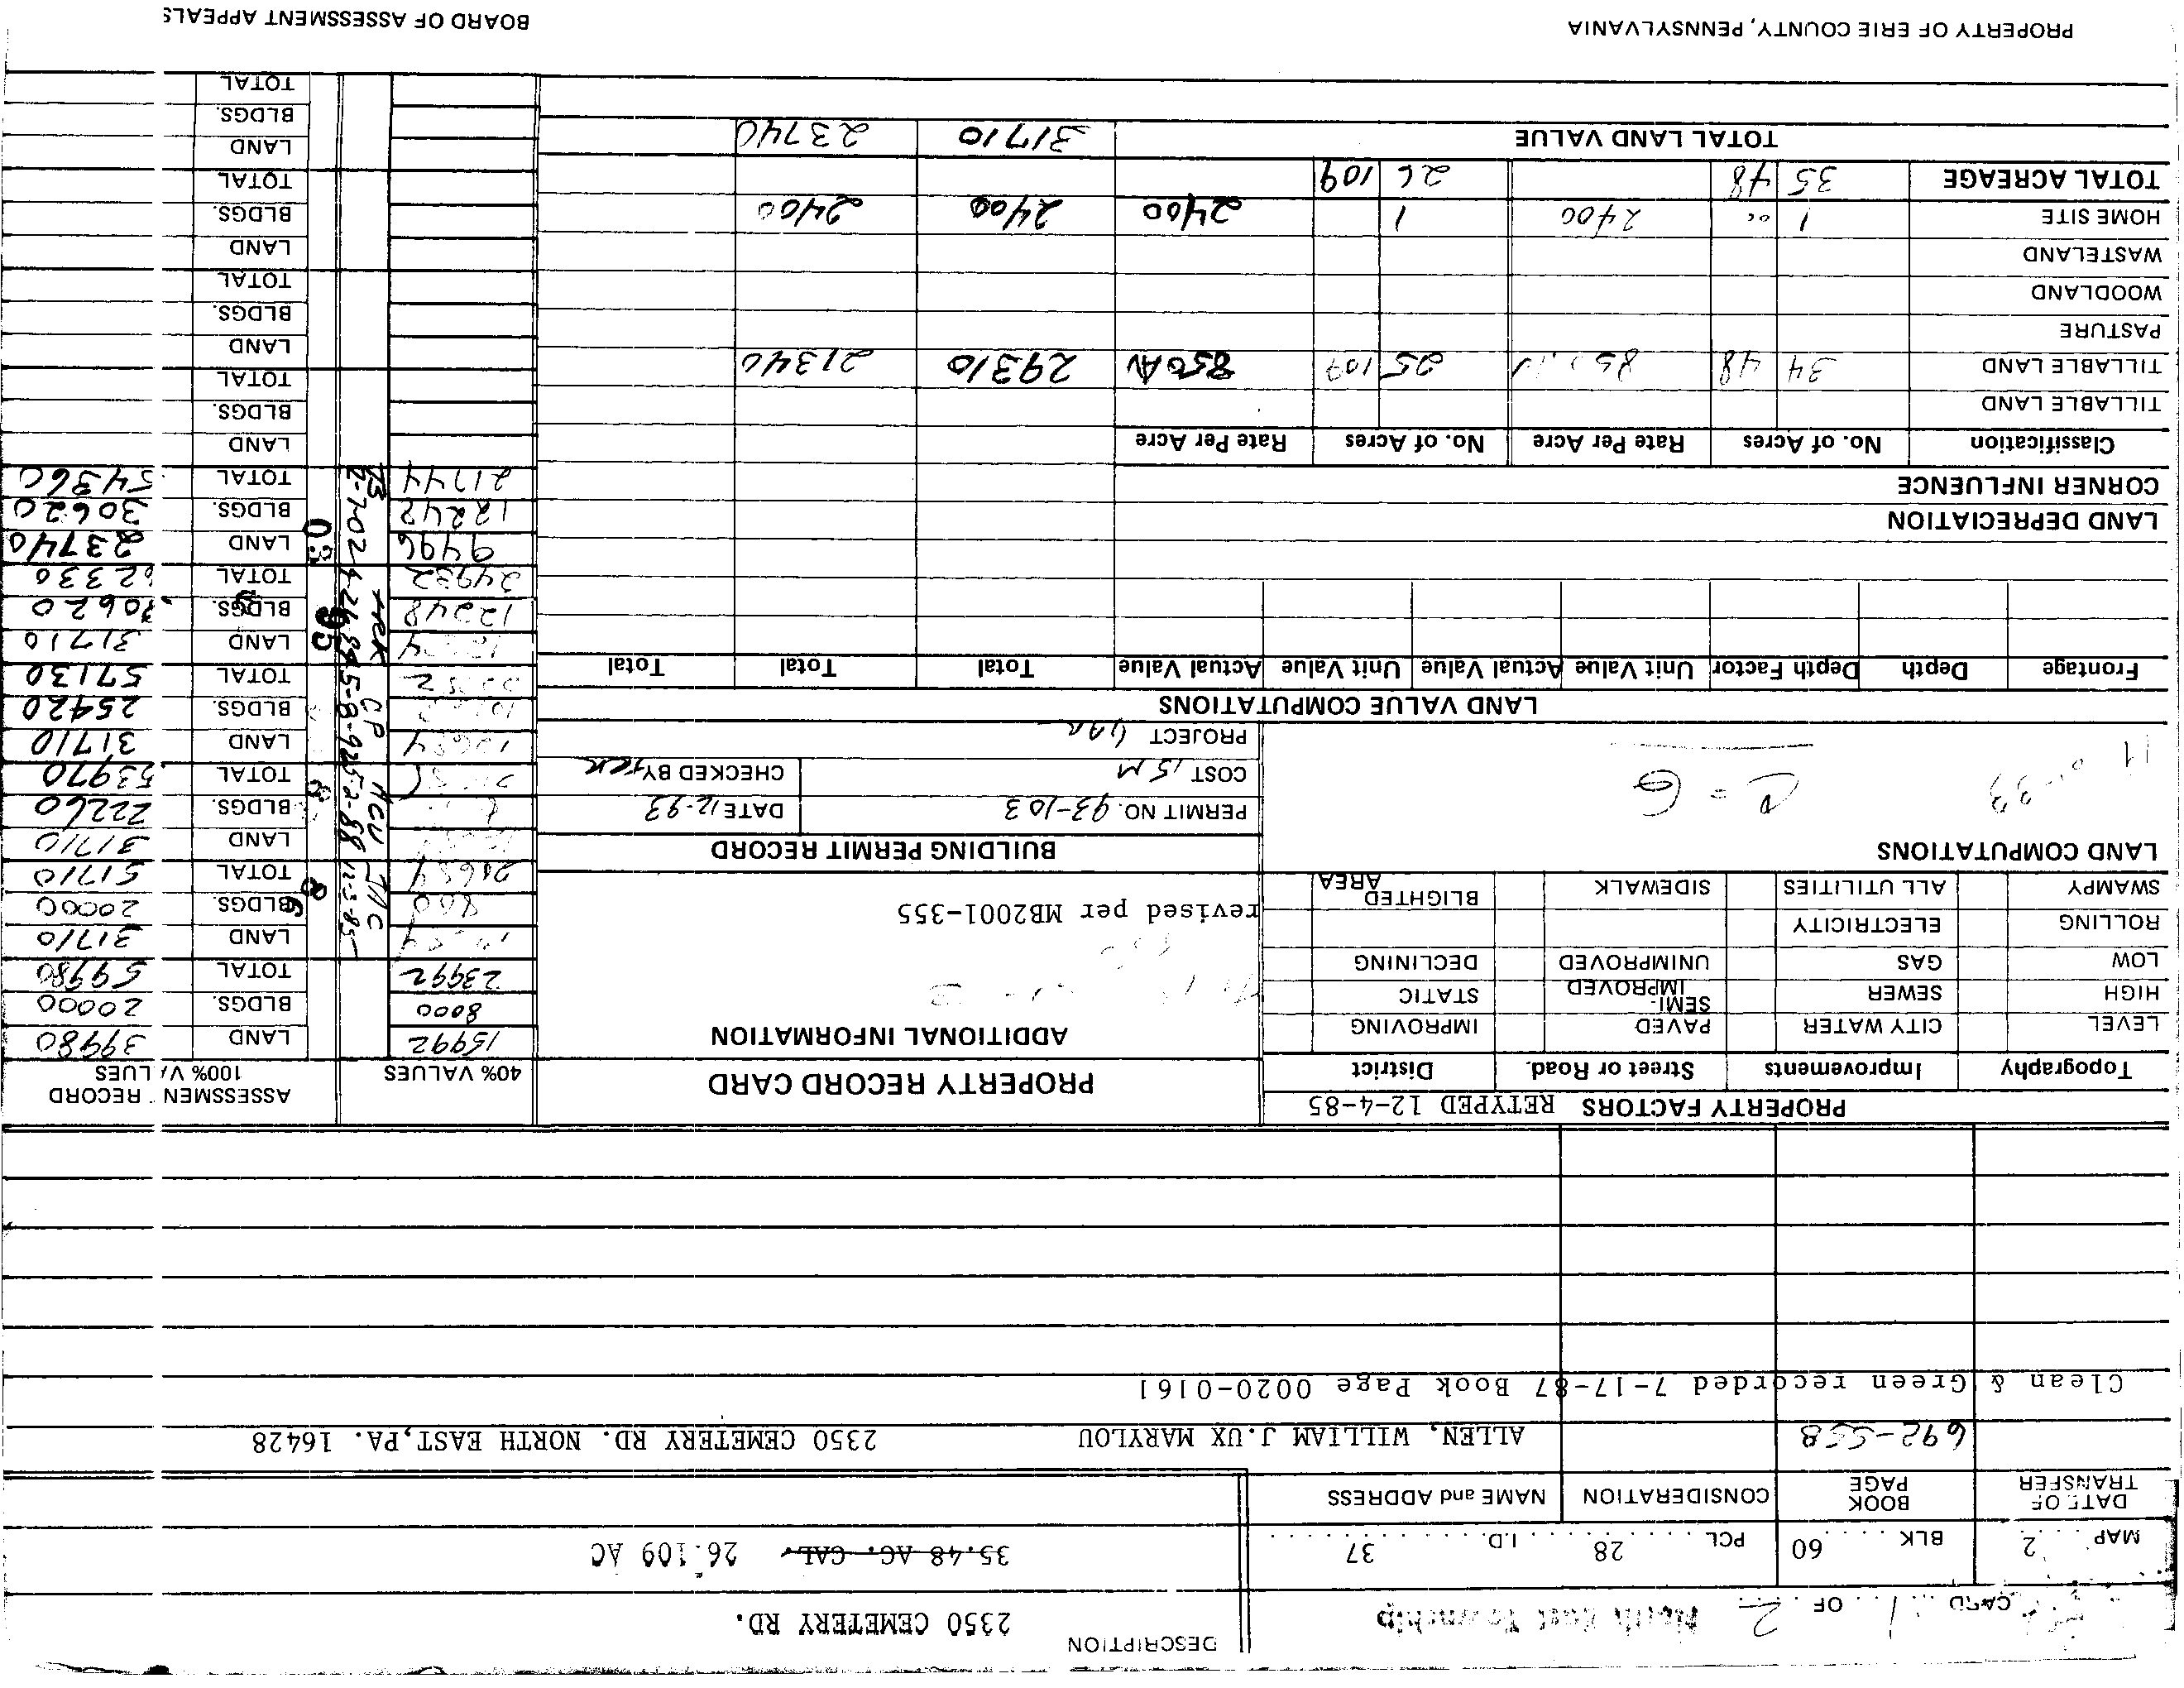 CARD 1 OF 2 North East Township
DESCRIPTION
2350 CEMETERY RD.
MAP 2 BLK 60 PCL 28 I.D. 37
35.48 AC. CAL. 26.109 AC
DATE OF TRANSFER
BOOK PAGE
CONSIDERATION
NAME and ADDRESS
692-558 ALLEN, WILLIAM J.UX MARYLOU 2350 CEMETERY RD. NORTH EAST,PA. 16428
Clean & Green recorded 7-17-87 Book Page 0020-0161
PROPERTY FACTORS RETYPED 12-4-85
Topography Improvements Street or Road. District
LEVEL CITY WATER PAVED IMPROVING
HIGH SEWER SEMI-IMPROVED STATIC
LOW GAS UNIMPROVED DECLINING
ROLLING ELECTRICITY
SWAMPY ALL UTILITIES SIDEWALK BLIGHTED AREA
LAND COMPUTATIONS
PROPERTY RECORD CARD
ADDITIONAL INFORMATION
revised per MB2001-355
BUILDING PERMIT RECORD
PERMIT NO. 93-103 DATE 12-93
COST 15 M CHECKED BY
PROJECT
40% VALUES
ASSESSMEN RECORD
100% VALUES
15992 LAND 39980
8000 BLDGS. 20000
23992 TOTAL 59980
LAND 31710
BLDGS. 20000
20684 TOTAL 51710
LAND 31710
BLDGS. 22260
TOTAL 53970
LAND 31710
BLDGS. 25420
TOTAL 57130
LAND 31710
12248 BLDGS. 30620
24932 TOTAL 62330
9496 LAND 23740
12248 BLDGS. 30620
21744 TOTAL 54360
LAND
BLDGS.
TOTAL
LAND
BLDGS.
TOTAL
LAND
BLDGS.
TOTAL
LAND
BLDGS.
TOTAL
LAND VALUE COMPUTATIONS
Frontage Depth Depth Factor Unit Value Actual Value Unit Value Actual Value Total Total Total
LAND DEPRECIATION
CORNER INFLUENCE
Classification No. of Acres Rate Per Acre No. of Acres Rate Per Acre
TILLABLE LAND
TILLABLE LAND 34 48 850 AV 25 109 850 AV 29310 21340
PASTURE
WOODLAND
WASTELAND
HOME SITE 1 00 2400 1 2400 2400 2400
TOTAL ACREAGE 35 48 26 109
TOTAL LAND VALUE 31710 23740
PROPERTY OF ERIE COUNTY, PENNSYLVANIA
BOARD OF ASSESSMENT APPEALS